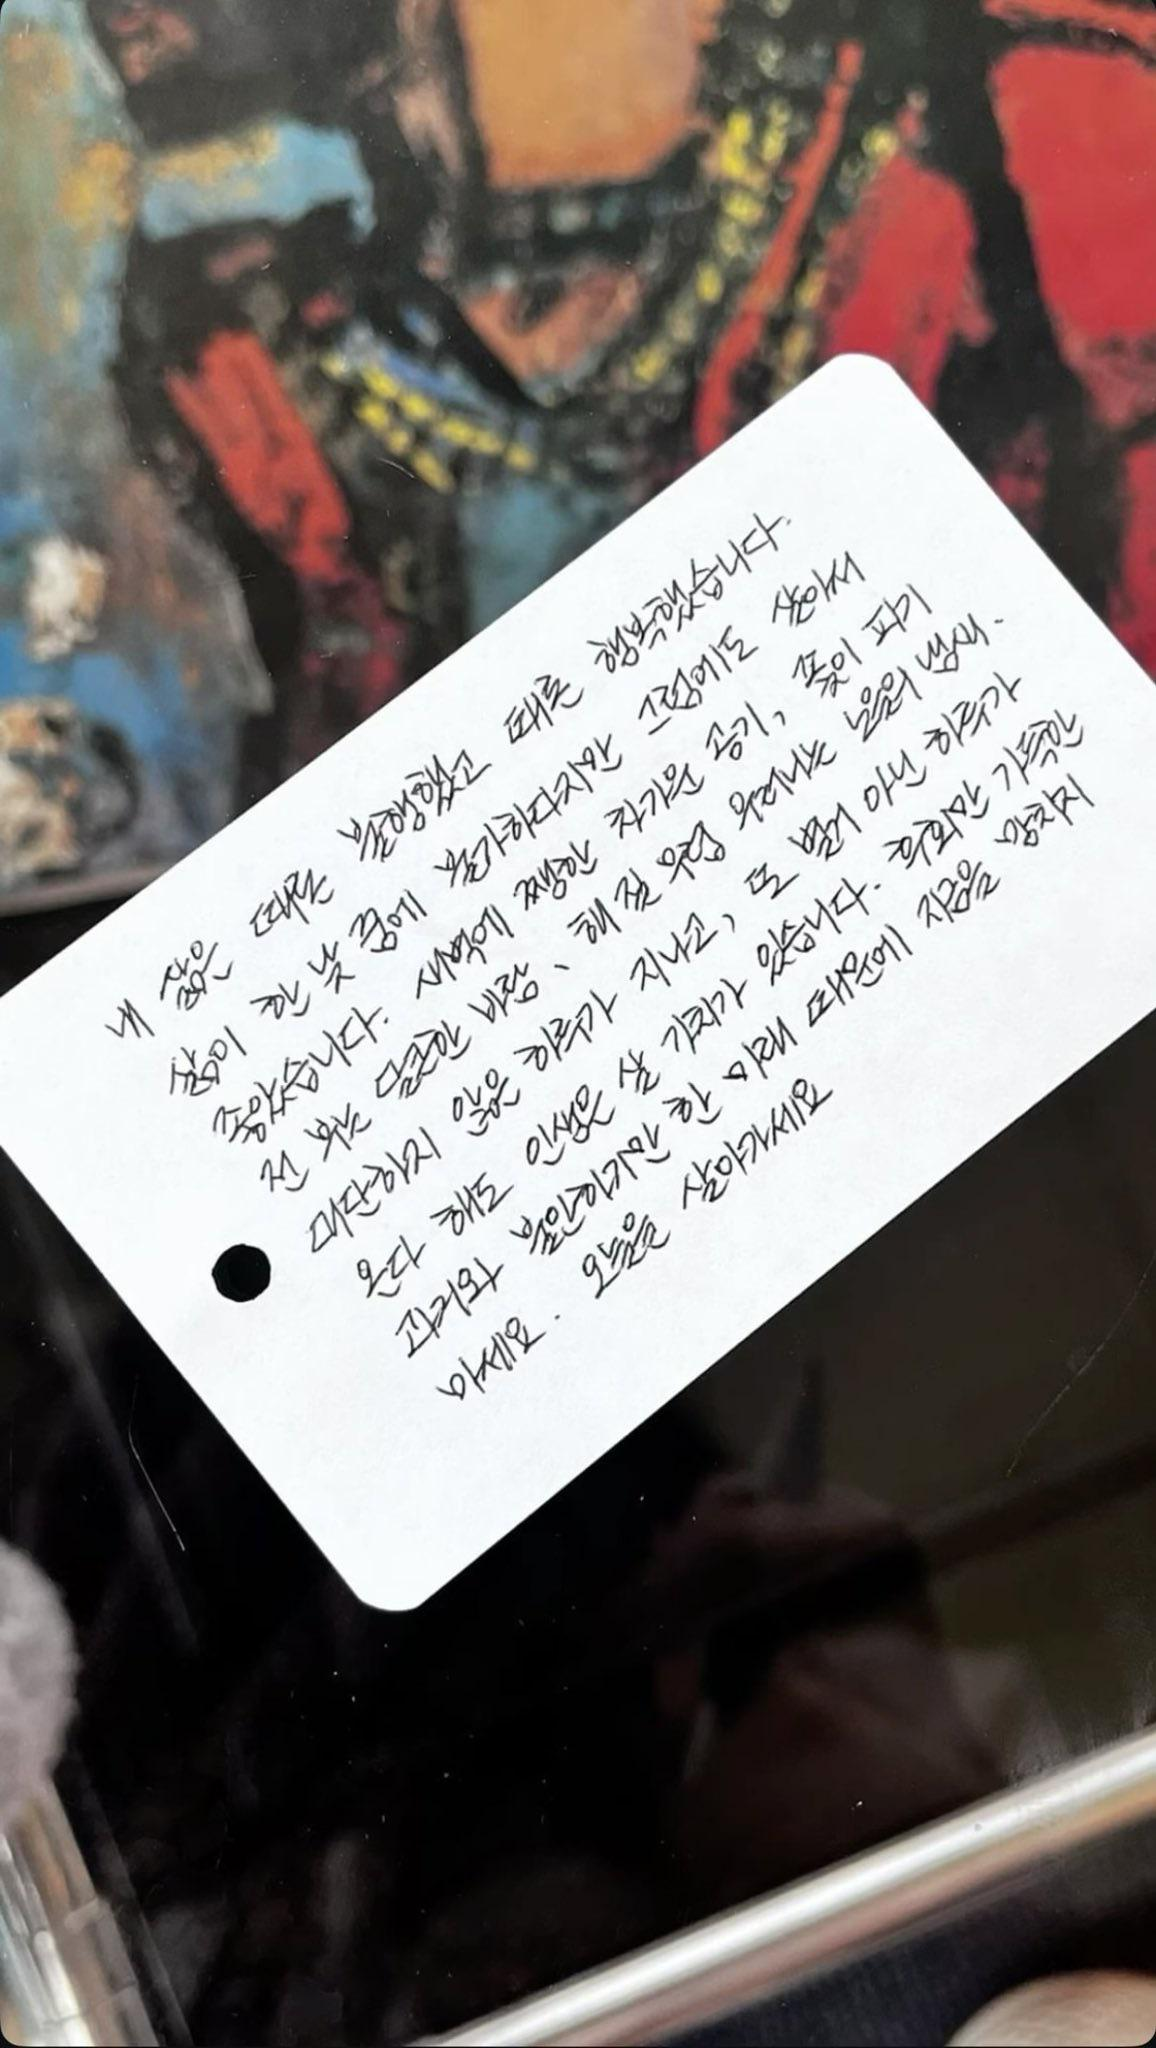 내 삶은 때론 불행했고 때론 행복했습니다.
삶이 한 낮 꿈에 불과하다지만 그럼에도 살아서
좋았습니다. 새벽에 쨍한 차가운 공기, 꽃이 피기
전 부는 달큰한 바람, 해 질 무렵 우러나는 노을의 냄새.
대단하지 않은 하루가 지나고, 또 별거 아닌 하루가
온다 해도 인생은 살 가치가 있습니다. 후회만 가득한
과거와 불안하기만 한 미래 때문에 지금을 망치지
마세요. 오늘을 살아가세요